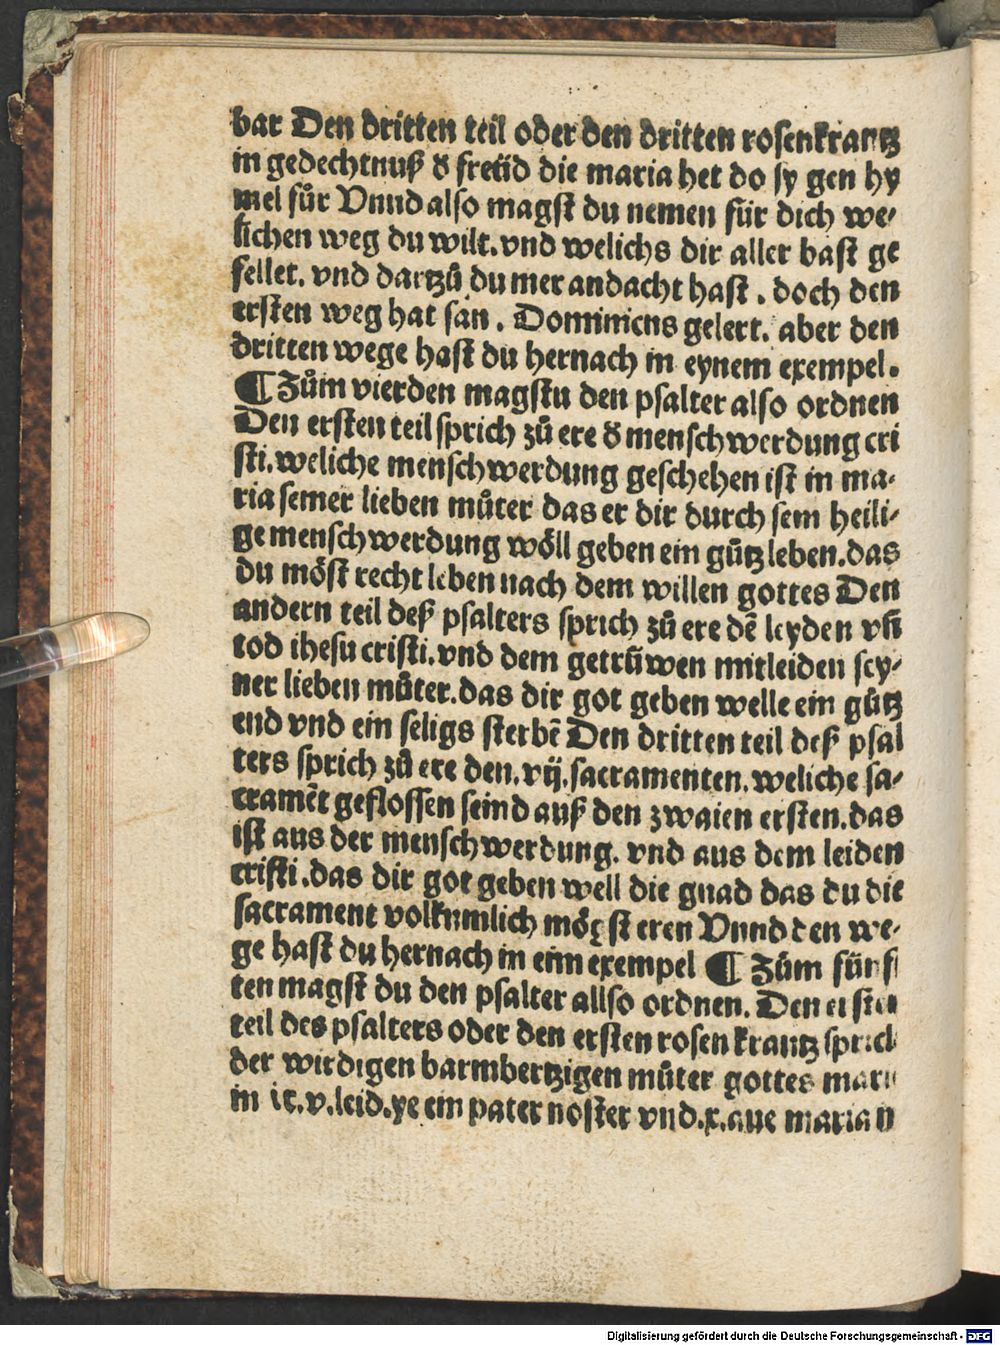 bar Den dritten teil oder den dritten rosenkrantz
in gedechtnuß d̕ freüd die maria het do sy gen hy
mel fůr Vnnd also magst du nemen für dich we⸗
lichen weg du wilt. vnd welichs dir aller bast ge
fellet. vnd dartzů du mer andacht hast. doch den
ersten weg hat san. Dominicus gelert. aber den
dritten wege hast du hernach in eynem exempel.
¶ Zům vierden magstu den psalter also ordnen
Den ersten teil sprich zů ere d̕ menschwerdung cri
sti. weliche menschwerdung geschehen ist in ma⸗
ria seiner lieben můter das er dir durch sein heili⸗
ge menschwerdung wöll geben ein gůtz leben. das
du möst recht leben nach dem willen gottes Den
andern teil deß psalters sprich zů ere dē leyden vn̄
tod ihesu cristi. vnd dem getrüwen mitleiden sey⸗
ner lieben můter. das dir got geben welle ein gůtz
end vnd ein seligs sterbē Den dritten teil deß psal
ters sprich zů ere den. vij. sacramenten. weliche sa⸗
cramēt geflossen seind auß den zwaien ersten. das
ist aus der menschwerdung. vnd aus dem leiden
cristi. das dir got geben well die gnad das du die
sacrament volkumlich mögst eren Vnnd den we⸗
ge hast du hernach in einn exempel ¶ Zům fünf
ten magst du den psalter allso ordnen. Den ersten
teil des psalters oder den ersten rosenkrantz sprich
der wirdigen barmhertzigen můter gottes marie
in ir. v. leid. ye ein pater noster vnd. x. aue maria
Digitalisierung gefördert durch die Deutsche Forschungsgemeinschaft - DFG